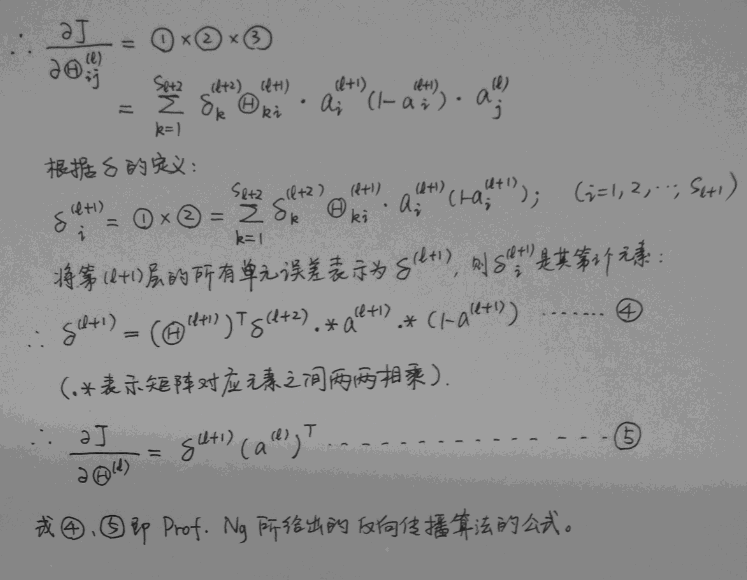 ∴ ∂J/∂Θ_{ij}^{(l)} = ① × ② × ③
= Σ_{k=1}^{S_{l+2}} δ_k^{(l+2)} Θ_{ki}^{(l+1)} · a_i^{(l+1)} (1-a_i^{(l+1)}) · a_j^{(l)}
根据δ的定义:
δ_i^{(l+1)} = ① × ② = Σ_{k=1}^{S_{l+2}} δ_k^{(l+2)} Θ_{ki}^{(l+1)} · a_i^{(l+1)} (1-a_i^{(l+1)}); (i=1,2,…, S_{l+1})
将第(l+1)层的所有单元误差表示为δ^{(l+1)}, 则δ_i^{(l+1)}是其第i个元素:
∴ δ^{(l+1)} = (Θ^{(l+1)})^T δ^{(l+2)} .* a^{(l+1)} .* (1-a^{(l+1)}) ······· ④
(.*表示矩阵对应元素之间两两相乘).
∴ ∂J/∂Θ^{(l)} = δ^{(l+1)} (a^{(l)})^T ··············· ⑤
式④、⑤即 Prof. Ng 所给出的反向传播算法的公式。